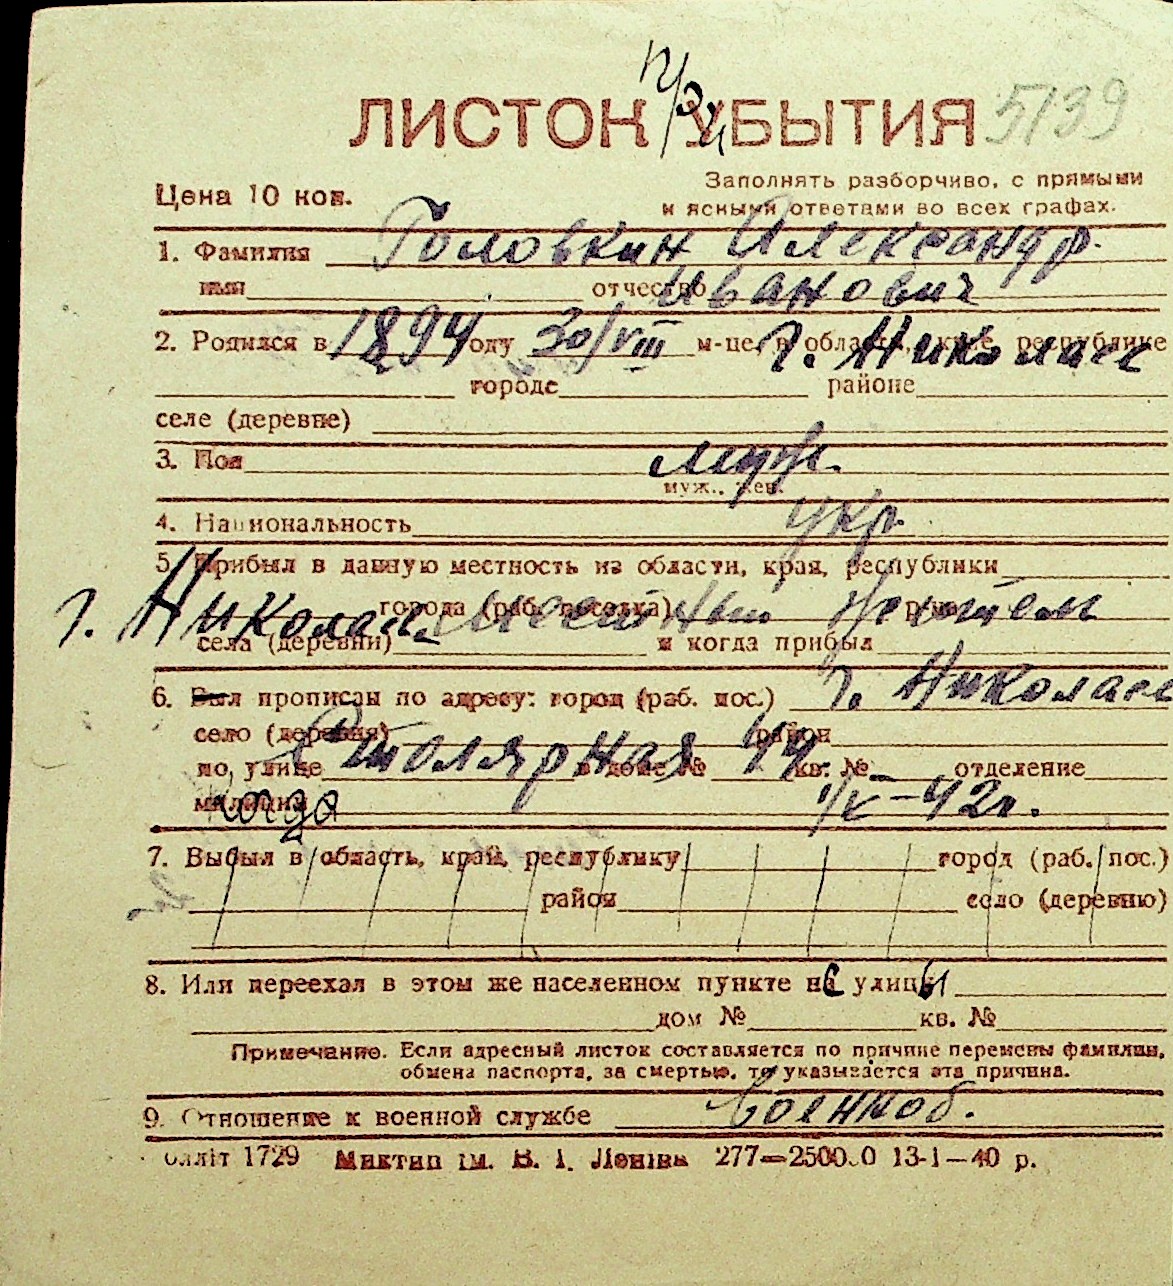 ЛИСТОК УБЫТИЯ 5139
Цена 10 коп.
Заполнять разборчиво, с прямыми
и ясными ответами во всех графах.
1. Фамилия Головкин Александр
имя отчество Иванович
2. Родился в 1894 году 30/VIII м-це, в области, крае, республике г. Николаев
городе районе
селе (деревне)
3. Пол муж.
муж., жен.
4. Национальность укр.
5. Прибыл в данную местность из области, края, республики
г. Николаев города (раб. поселка) местный житель
села (деревни) и когда прибыл
6. Был прописан по адресу: город (раб. пос.) г. Николаев
село (деревня) район
по улице Столярная в доме № 44 кв. № отделение
милиции когда 1/V-42 г.
7. Выбыл в область, край, республику город (раб. пос.)
район село (деревню)
8. Или переехал в этом же населенном пункте на улицы
дом № кв. №
Примечание. Если адресный листок составляется по причине перемены фамилии,
обмена паспорта, за смертью, то указывается эта причина.
9. Отношение к военной службе военноб.
Облліт 1729 Миктип ім. В. І. Леніна 277—25000 13-1—40 р.